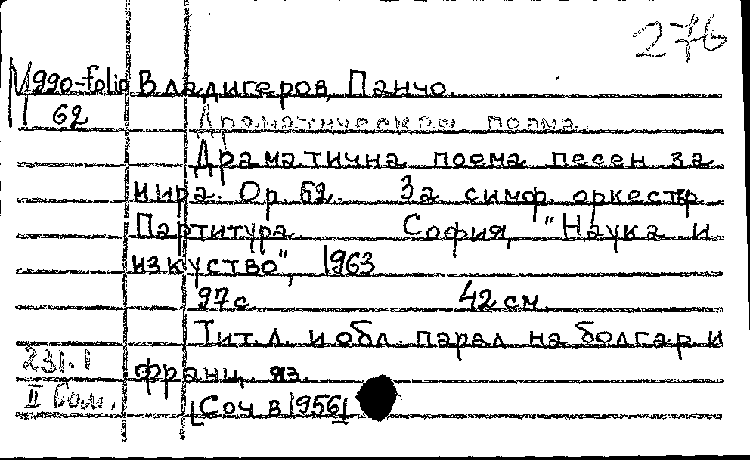 276
М 990-folio Владигеров, Панчо.
62 Драматическая поэма.
Драматична поема песен за
мира. Ор. 52. За симф. оркестр
Партитура. София, "Наука и
изкуство", 1963
97с 42 см.
Тит.л. и обл. парал на болгар и
231.1 франц. яз.
II [Соч в 1956]